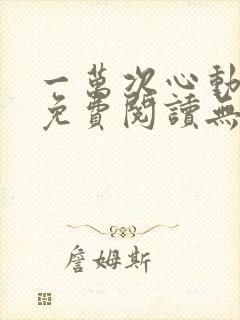 一萬次心動
免費閱讀無
詹姆斯